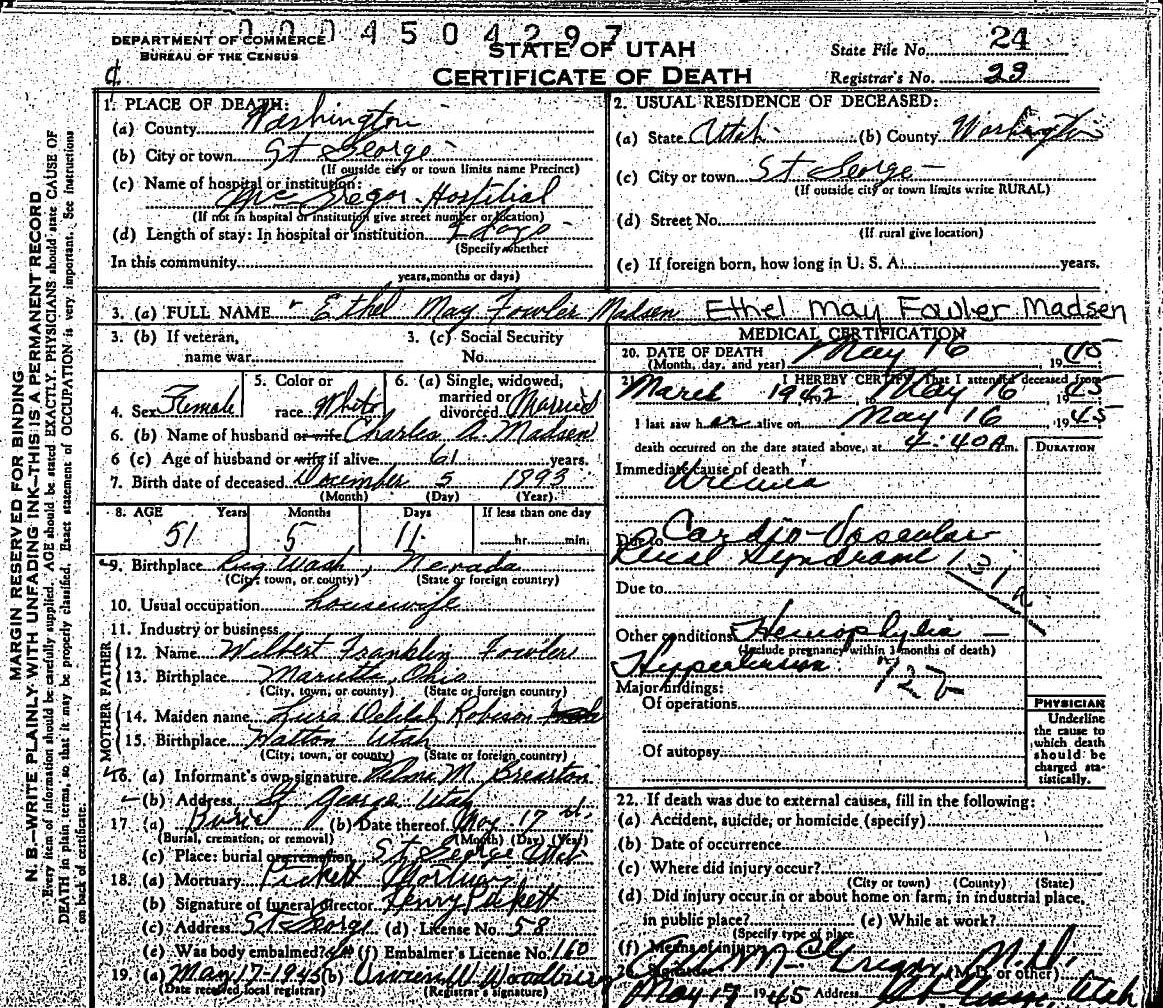 0004504297
DEPARTMENT OF COMMERCE
BUREAU OF THE CENSUS
STATE OF UTAH
CERTIFICATE OF DEATH
State File No. 24
Registrar's No. 29
¢
MARGIN RESERVED FOR BINDING
N. B.—WRITE PLAINLY WITH UNFADING INK—THIS IS A PERMANENT RECORD
Every item of information should be carefully supplied. AGE should be stated EXACTLY. PHYSICIANS should state CAUSE OF
DEATH in plain terms, so that it may be properly classified. Exact statement of OCCUPATION is very important. See instructions
on back of certificate.
1. PLACE OF DEATH:
(a) County Washington
(b) City or town St George
(If outside city or town limits name Precinct)
(c) Name of hospital or institution:
McGregor Hostilial
(If not in hospital or institution give street number or location)
(d) Length of stay: In hospital or institution days
(Specify whether
In this community
years, months or days)
2. USUAL RESIDENCE OF DECEASED:
(a) State Utah (b) County Washington
(c) City or town St George
(If outside city or town limits write RURAL)
(d) Street No.
(If rural give location)
(e) If foreign born, how long in U. S. A. years.
3. (a) FULL NAME Ethel May Fowler Madsen Ethel May Fowler Madsen
3. (b) If veteran,
name war
3. (c) Social Security
No.
4. Sex Female
5. Color or
race White
6. (a) Single, widowed,
married or
divorced Married
6. (b) Name of husband or wife Charles A. Madsen
6 (c) Age of husband or wife if alive 61 years.
7. Birth date of deceased December 5 1893
(Month) (Day) (Year)
8. AGE Years Months Days If less than one day
51 5 11 hr. min.
9. Birthplace Wash, Nevada
(City, town, or county) (State or foreign country)
10. Usual occupation housewife
11. Industry or business
FATHER
12. Name Wilbert Franklin Fowler
13. Birthplace Marietta, Ohio
(City, town, or county) (State or foreign country)
MOTHER
14. Maiden name Delilah Robison
15. Birthplace Hatton Utah
(City, town, or county) (State or foreign country)
16. (a) Informant's own signature M. Brearton
(b) Address St George Utah
17 (a) Burial (b) Date thereof May 17
(Burial, cremation, or removal) (Month) (Day) (Year)
(c) Place: burial or cremation St George Utah
18. (a) Mortuary Pickett Mortuary
(b) Signature of funeral director Henry Pickett
(c) Address St George (d) License No. 58
(e) Was body embalmed? (f) Embalmer's License No. 160
19. (a) May 17-1945 (b) Woodbury
(Date received local registrar) (Registrar's signature)
MEDICAL CERTIFICATION
20. DATE OF DEATH May 16 19
(Month, day, and year)
21. I HEREBY CERTIFY, That I attended deceased from
March 1942, to May 16 1945
I last saw her alive on May 16 1945
death occurred on the date stated above, at 4:40 A m.
DURATION
Immediate cause of death
Uremia
Due to Cardio-Vascular
Renal Syndrome 131a
Due to
Other conditions Hemophylia
(Include pregnancy within 3 months of death)
Hypertension
Major findings:
Of operations
Of autopsy
PHYSICIAN
Underline
the cause to
which death
should be
charged sta-
tistically.
22. If death was due to external causes, fill in the following:
(a) Accident, suicide, or homicide (specify)
(b) Date of occurrence
(c) Where did injury occur?
(City or town) (County) (State)
(d) Did injury occur in or about home on farm, in industrial place,
in public place? (e) While at work?
(Specify type of place
(f) Means of injury
McGregor M.D.
(M.D. or other)
May 17 1945 Address St George, Utah